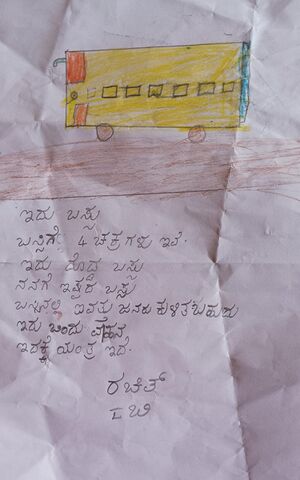 ಇದು ಬಸ್ಸು
ಬಸ್ಸಿಗೆ 4 ಚಕ್ರಗಳು ಇವೆ.
ಇದು ದೊಡ್ಡ ಬಸ್ಸು
ನನಗೆ ಇಷ್ಟದ ಬಸ್ಸು
ಬಸ್ಸಿನಲ್ಲಿ ಇವತ್ತು ಜನರು ಕುಳಿತುಬಹುದು
ಇದು ಒಂದು ವಾಹನ
ಇದಕ್ಕೆ ಯಂತ್ರ ಇದೆ.
ರಚಿತ್
I ಬಿ